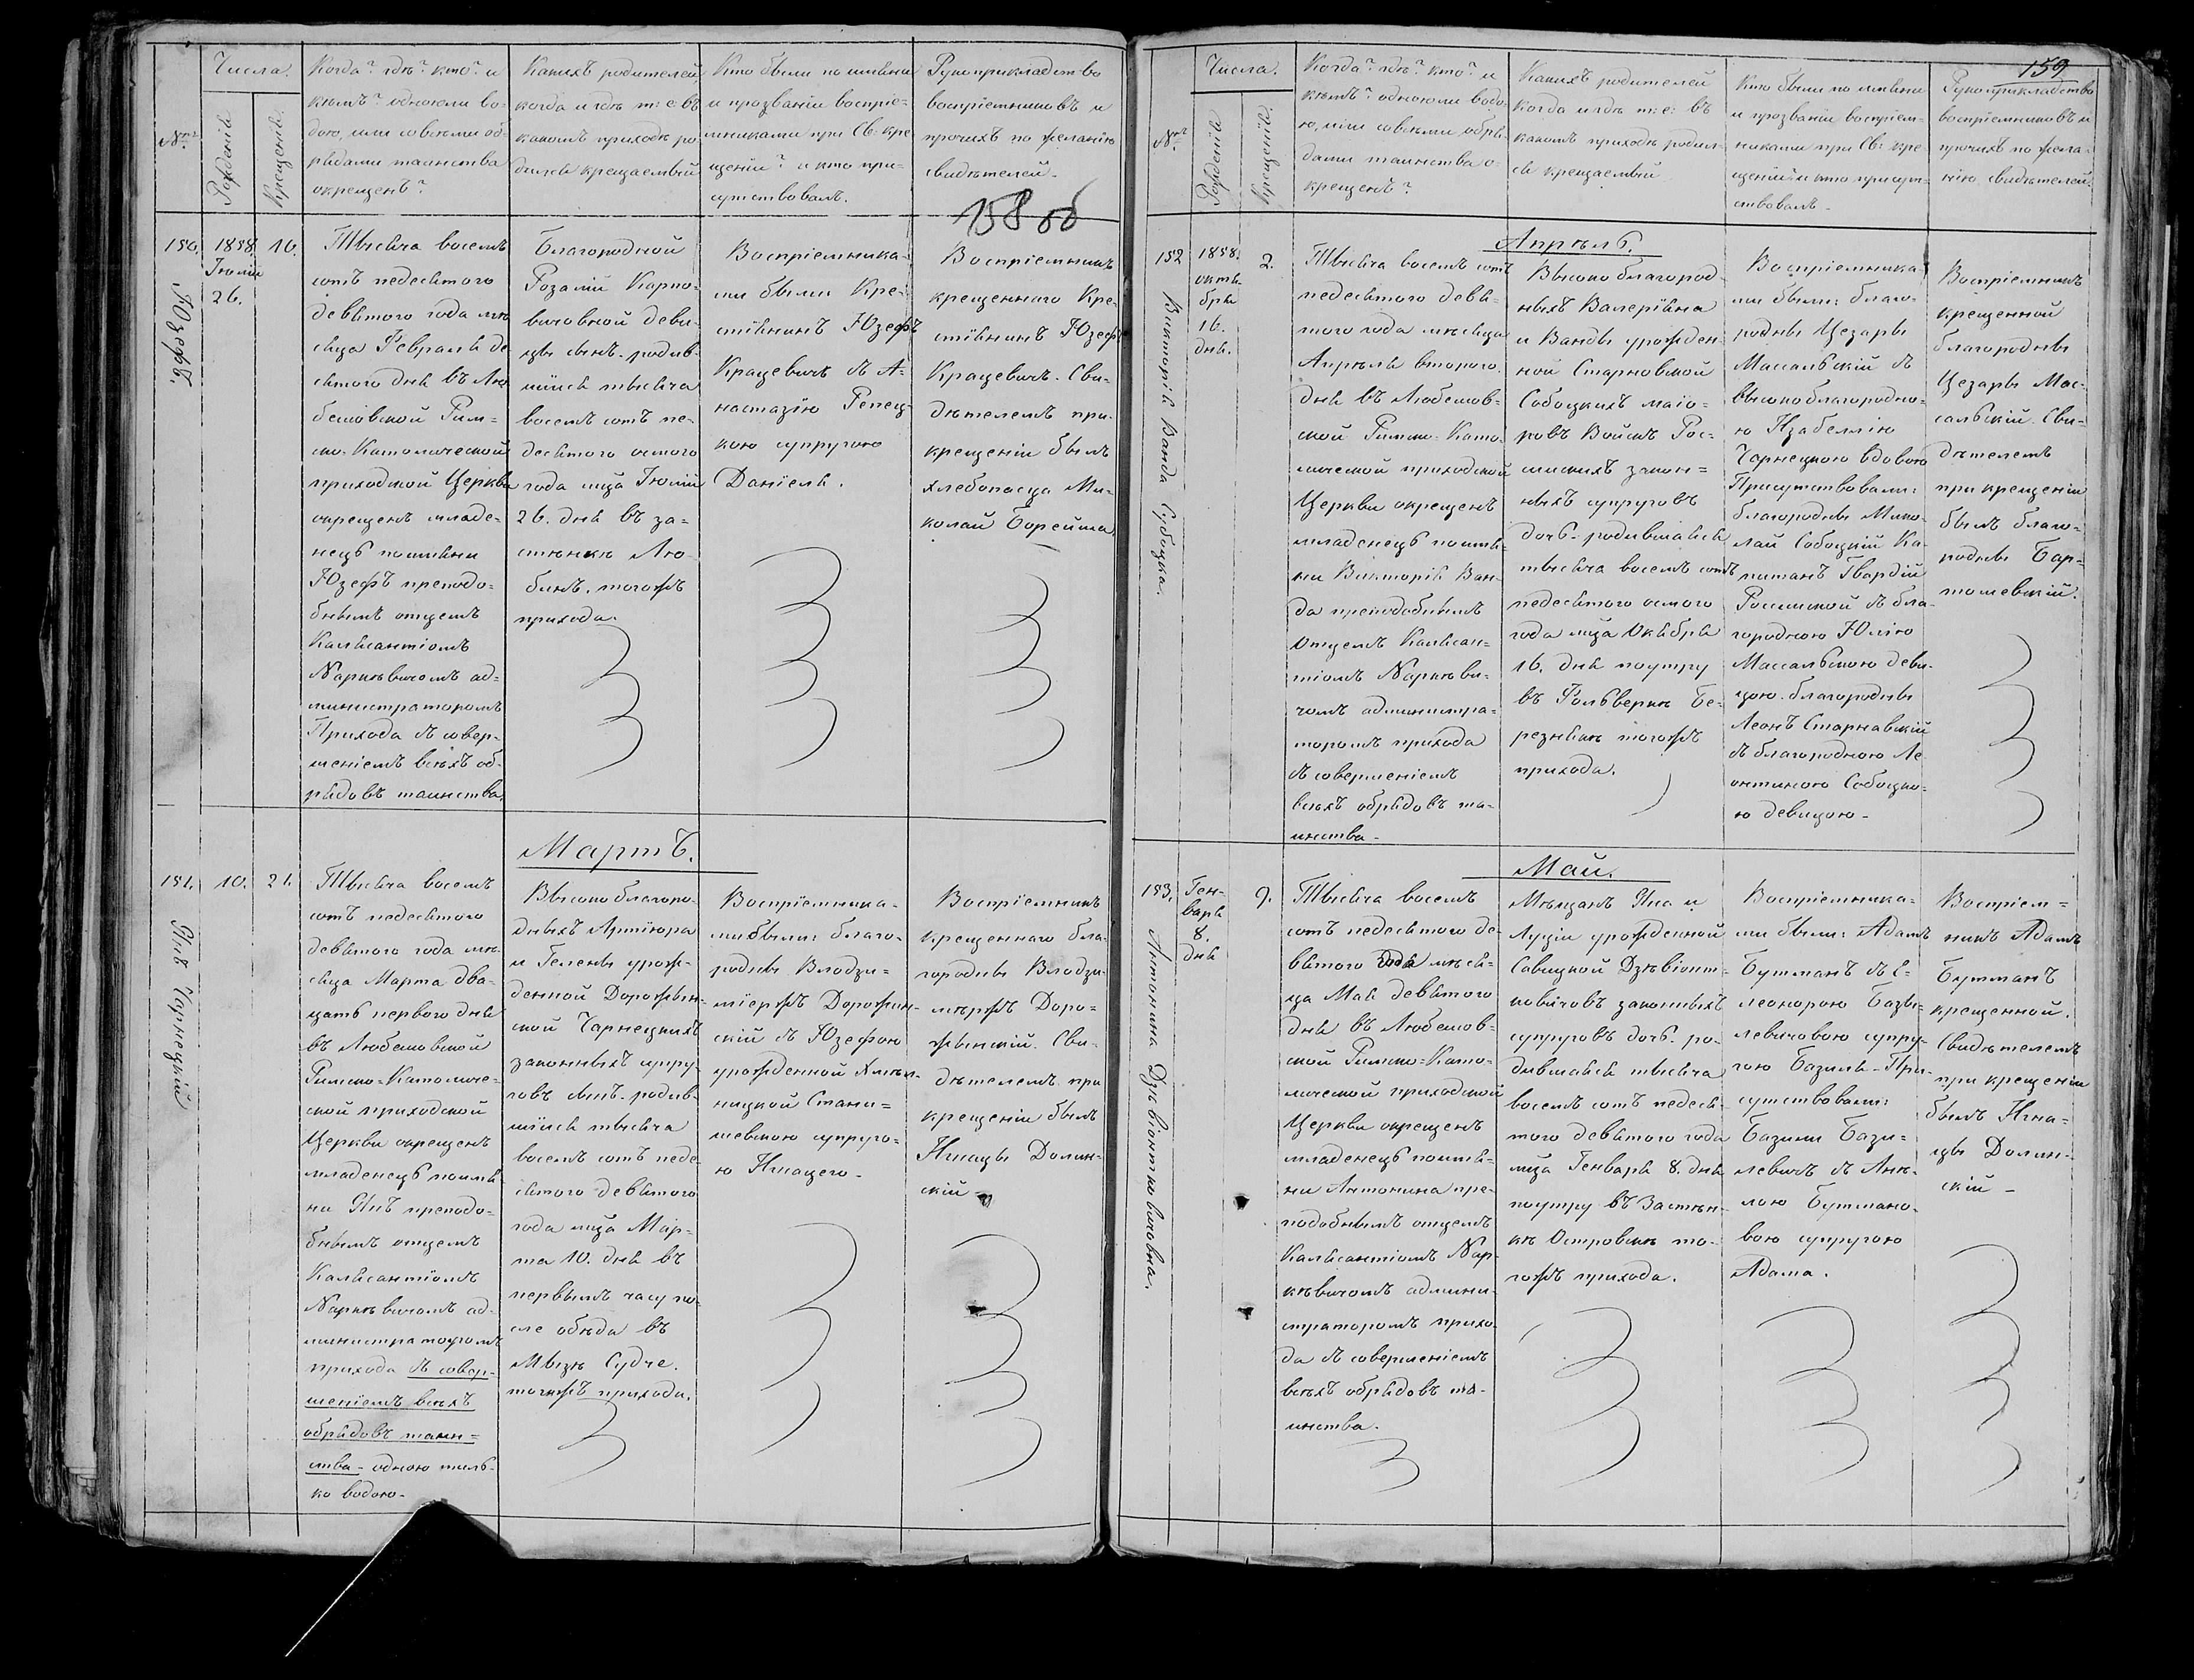 Числа.
№
Рожденія
Крещенія.
Когда? гдѣ? кто? и
кѣмъ? одноюли во-
дою, или совсѣми об-
рядами таинства
окрещенъ?
Какихъ родителей
когда и гдѣ т: е: въ
какомъ приходѣ ро
дился крещаемый
Кто были по имени
и прозванію воспріе-
мниками при Св: кре
щеніи? и кто при-
сутствовалъ.
Рукоприкладство
воспріемниковъ и
прочихъ по желанію
свидѣтелей.
158 об
150.
Юзефъ.
1858
Іюлія
26.
10.
Тысяча восемъ
сотъ педесятого
девятого года мѣ
сяца Февраля де
сятого дня въ Лю
бешовской Рим=
ско-Католической
приходской Церкви
окрещенъ младе-
нецъ по имени
Юзефъ преподо-
бнымъ отцемъ
Калясантіомъ
Наркѣвичомъ ад-
министраторомъ
Прихода съ совер-
шеніемъ всѣхъ об-
рядовъ таинства.
Благородной
Розаліи Карпо-
вичовной деви-
цы сынъ. родив-
шійся тысяча
восемъ сотъ пе-
десятого осмого
года мца Іюлія
26. дня въ за-
стѣнкѣ Лю-
бинъ, тогожъ
прихода.
Воспріемника-
ми были Кре-
стіянинъ Юзефъ
Крацевичъ съ А-
настазію Репец-
кою супругою
Даніеля.
Воспріемникъ
крещеннаго Кре-
стіянинъ Юзефъ
Крацевичъ. Сви-
дѣтелемъ при
крещеніи былъ
хлебопасца Ми-
колай Борейша
Мартъ.
151.
Янъ Чарнецкій
10.
21.
Тысяча восемъ
сотъ педесятого
девятого года мѣ-
сяца Марта два-
цать первого дня
въ Любешовской
Римско-Католиче-
ской приходской
Церкви окрещенъ
младенецъ по имя-
ни Янъ преподо-
бнымъ отцемъ
Калясантіомъ
Наркѣвичомъ ад-
министраторомъ
прихода съ совер-
шеніемъ всѣхъ
обрядовъ таин=
ства - одною толь-
ко водою.
Высокоблагоро-
дныхъ Артіюра
и Гелены урож-
денной Дорожын-
ской Чарнецкихъ
законныхъ супру-
говъ сынъ. родив-
шійся тысяча
восемъ сотъ педе-
сятого девятого
года мца Мар-
та 10. дня въ
первымъ часу по-
сле обѣда въ
Мызѣ Судче.
тогожъ прихода.
Воспріемника-
ми были: благо-
родны Влодзи-
міержъ Дорожин-
скій съ Юзефою
урожденной Хмѣл-
ницкой Стани=
шевскою супруго-
ю Игнацего.
Воспріемникъ
крещеннаго бла-
городны Влодзи-
мѣржъ Доро=
жынскій. Сви-
дѣтелемъ при
крещеніи былъ
Игнацы Долин-
скій
159
Числа.
№
Рожденія
Крещенія.
Когда? гдѣ? кто? и
кѣмъ? одноюли водо-
ю, или совсѣми обря-
дами таинства о-
крещенъ?
Какихъ родителей
когда и гдѣ т: е: въ
какомъ приходѣ родил-
ся крещаемый
Кто были по имени
и прозванію воспріем-
никами при Св: кре
щеніи и кто присут-
ствовалъ.
Рукоприкладство
воспріемниковъ и
прочихъ по жела-
нію свидѣтелей.
Апрѣль.
152
Викторія Ванда Собоцка.
1858.
октя
бря
16.
дня.
2.
Тысяча восемъ сотъ
педесятого девя-
того года мѣсяца
Апрѣля второго
дня въ Любешов-
ской Римско-Като-
лической приходской
Церкви окрещенъ
младенецъ по имя-
ни Викторія Ван-
да преподобнымъ
Отцемъ Калясан-
тіомъ Наркѣви-
чомъ администра-
торомъ прихода
съ совершеніемъ
всѣхъ обрядовъ та-
инства.
Высокоблагород-
ныхъ Валеріяна
и Ванды урожден-
ной Старновской
Собоцкихъ маіо-
ровъ Войскъ Рос-
сискихъ закон=
ныхъ супруговъ
дочь. родившаяся
тысяча восемъ сотъ
педесятого осмого
года мца Октября
16. дня поутру
въ Фольверкѣ Бе-
резнякѣ тогожъ
прихода.
Воспріемника-
ми были: благо-
родны Цезары
Массальскій съ
высокоблагородно-
ю Изабеллію
Чарнецкою вдовою
Присутствовали:
благородны Мико-
лай Собоцкій Ка-
питанъ Гвардіи
Россійской съ бла-
городною Юлію
Массальскою деви-
цою. благородны
Леонъ Старнавскій
съ благородною Ле
онтиною Собоцко-
ю девицою.
Воспріемникъ
крещенной
благородны
Цезары Мас-
сальскій. Сви-
дѣтелемъ
при крещеніи
былъ благо-
родны Бар-
тошевскій.
Май.
153.
Антонина Дзѣвіонтковичовна.
Ген-
варя
8.
дня
9.
Тысяча восемъ
сотъ педесятого де-
вятого года мѣся-
ца Мая девятого
дня въ Любешов-
ской Римско-Като-
лической приходской
Церкви окрещенъ
младенецъ по имя-
ни Антонина пре-
подобнымъ отцемъ
Калясантіомъ Нар-
кѣвичомъ админи-
страторомъ прихо-
да съ совершеніемъ
всѣхъ обрядовъ та-
инства.
Мѣщанъ Яна и
Луціи урожденной
Савицкой Дзѣвіонт-
ковичовъ законныхъ
супруговъ дочь. ро-
дившаяся тысяча
восемъ сотъ педеся-
того девятого года
мца Генваря 8. дня
поутру въ Застѣн-
кѣ Островскѣ то-
гожъ прихода.
Воспріемника-
ми были: Адамъ
Бутманъ съ Е-
леонорою Базы-
левичовою супру-
гою Базыля. При-
сутствовали:
Базыли Бази-
левичъ съ Анѣ-
лою Бутмано-
вою супругою
Адама.
Воспріем=
никъ Адамъ
Бутманъ
крещенной.
Свидѣтелемъ
при крещеніи
былъ Игна-
цы Долин-
скій